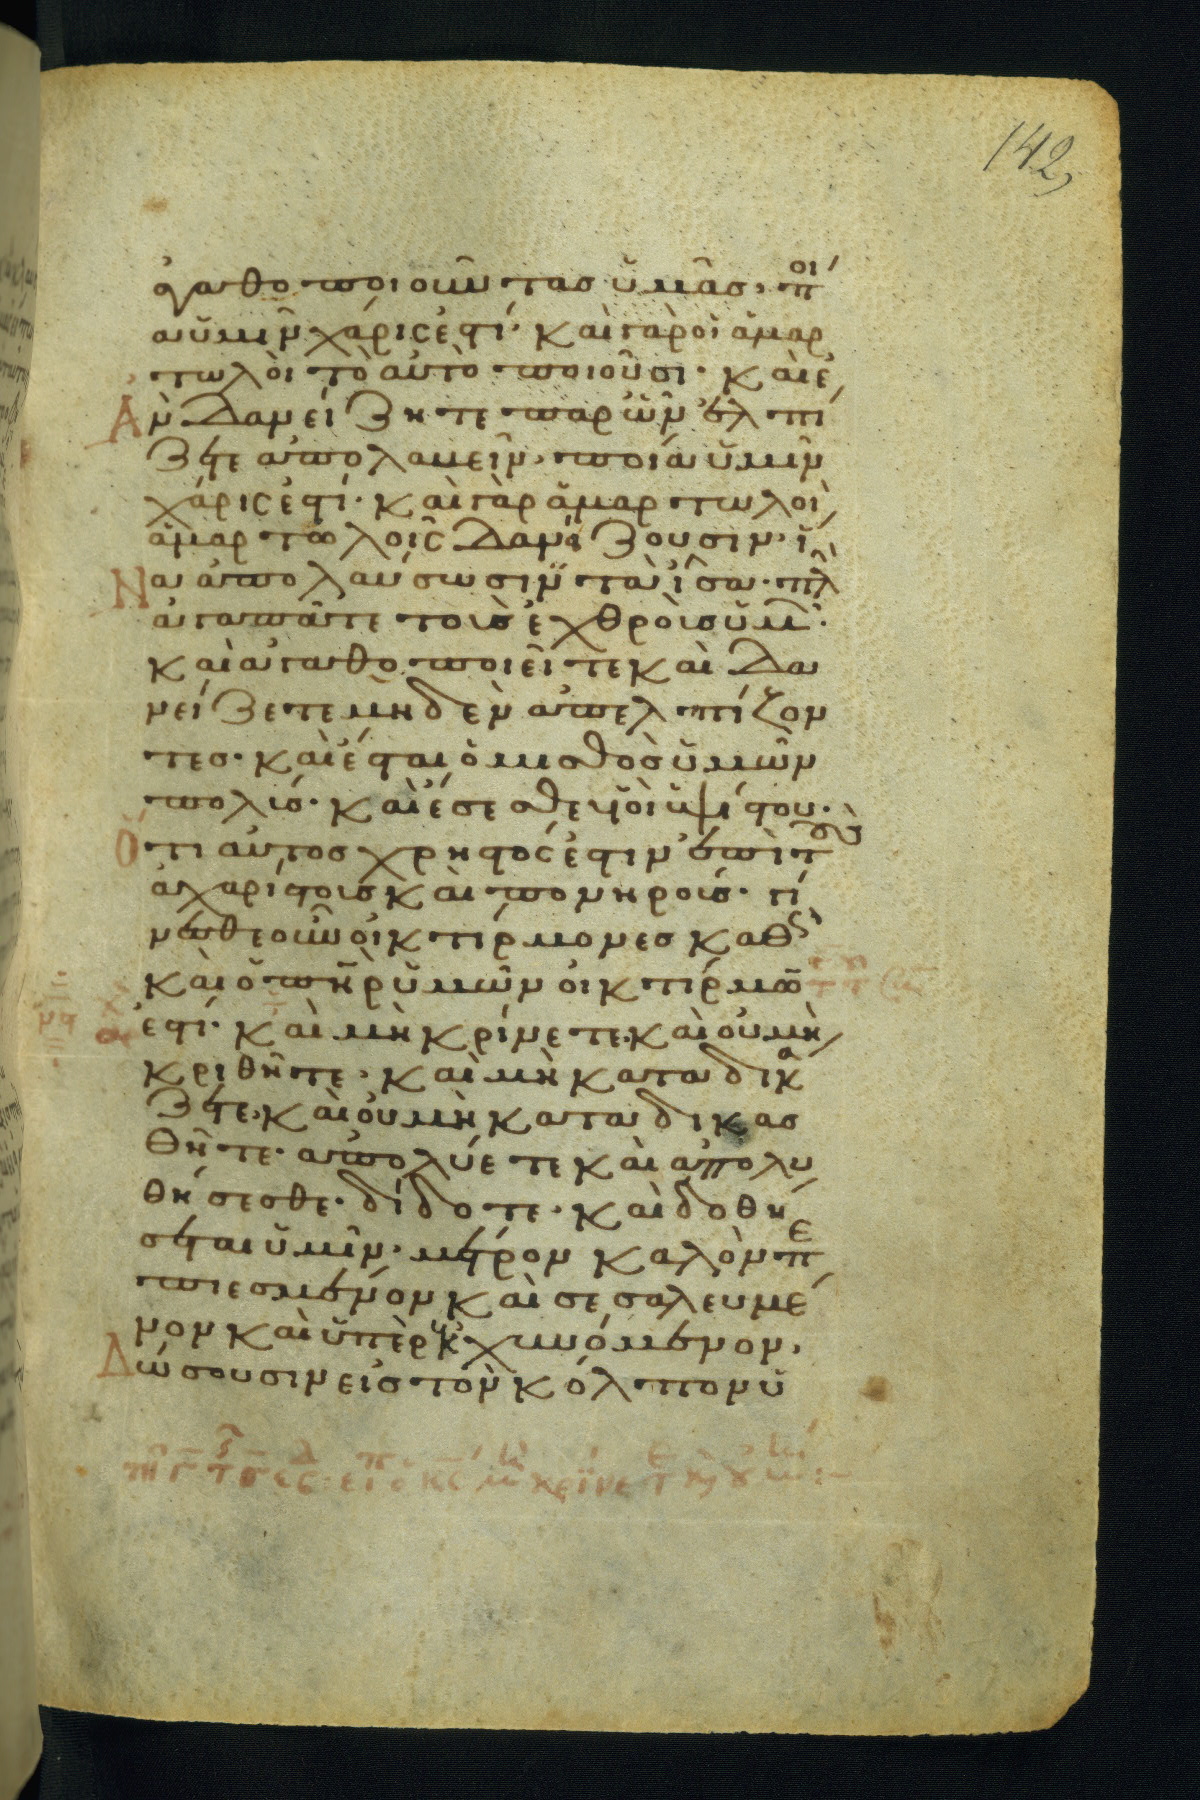 142
ἀγαθοποιοῦντας ὑμᾶς, ποί
α ὑμῖν χάρις ἐστί· καὶ γὰρ οἱ ἁμαρ
τωλοὶ τὸ αὐτὸ ποιοῦσι· καὶ ἐ
Ὰν δανείζητε παρ ὧν ἐλπί
ζετε ἀπολαβεῖν, ποία ὑμῖν
χάρις ἐστί· καὶ γὰρ ἁμαρτωλοὶ
ἁμαρτωλοῖς δανείζουσιν· ἵ
Να ἀπολαύσωσιν τὰ ἴσα· πλ
ἀγαπᾶτε τοὺς ἐχθροὺς ὑμ
καὶ ἀγαθοποιεῖτε καὶ δα
νείζετε μηδὲν ἀπελπίζον
τες· καὶ ἔσται ὁ μισθὸς ὑμῶν
πολύς· καὶ ἔσεσθε υἱοὶ ὑψίστου·
Ὅτι αὐτὸς χρηστός ἐστιν ἐπὶ τοὺς
ἀχαρίστους καὶ πονηρούς· γί
νεσθε οὖν οἰκτίρμονες καθὼς
καὶ ὁ πηρ ὑμῶν οἰκτίρμω
ἐστί· καὶ μὴ κρίνετε, καὶ οὐ μὴ
κριθῆτε· καὶ μὴ καταδικά
ζετε, καὶ οὐ μὴ καταδικασ
θῆτε· ἀπολύετε καὶ ἀπολυ
θήσεσθε· δίδοτε· καὶ δοθή
σεται ὑμῖν· μέτρον καλὸν πε
πιεσμένον καὶ σεσαλευμέ
νον καὶ ὑπερεκχυνόμενον,
Δώσουσιν εἰς τὸν κόλπον ὑ